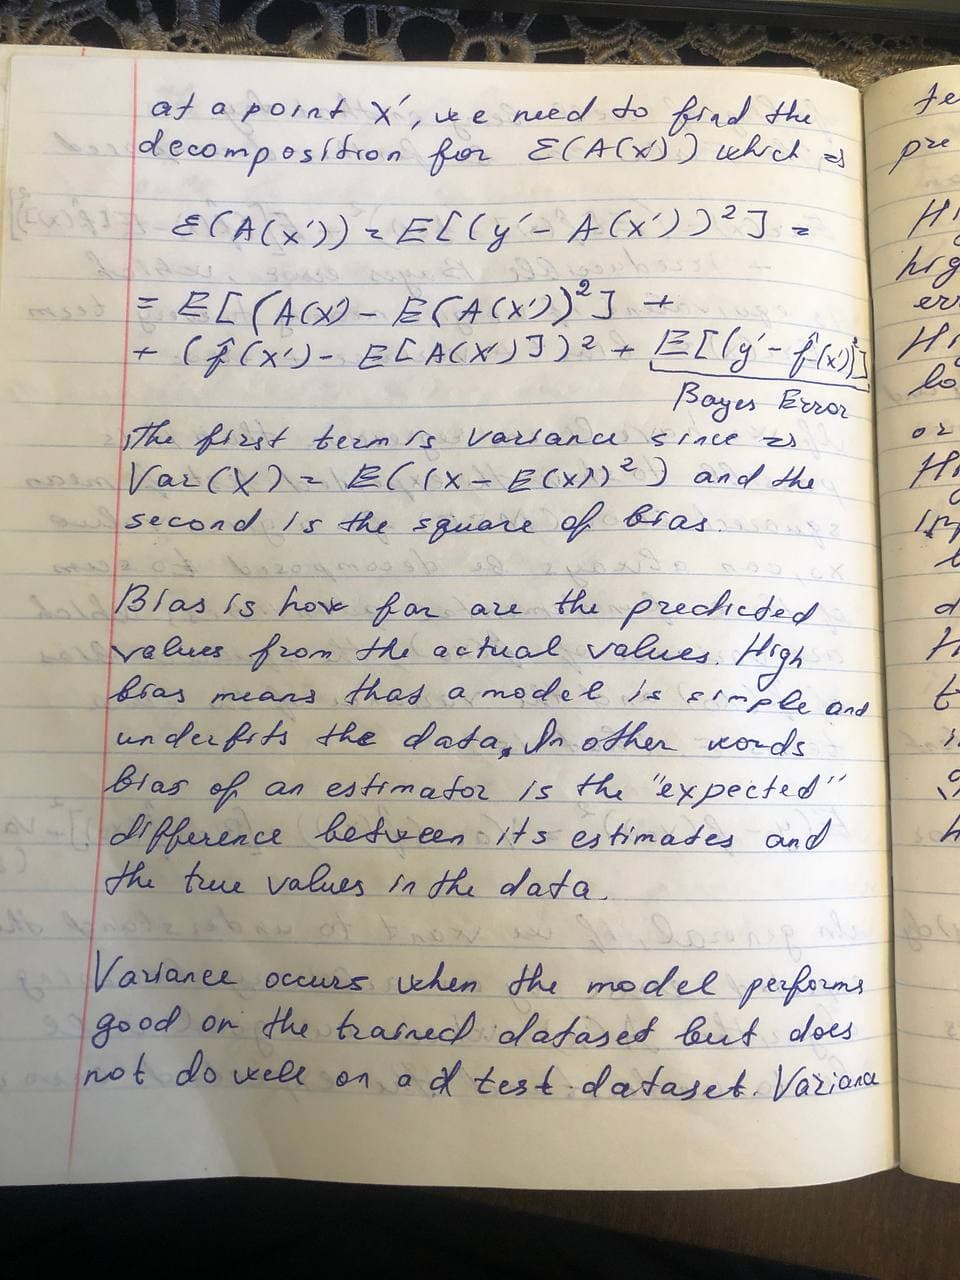 at a point x', we need to find the
decomposition for E(A(x')) which is
E(A(x')) = E[(y' - A(x'))²] =
= E[(A(x') - E(A(x'))²] +
+ (f̂(x') - E[A(x')])² + E[(y' - f̂(x'))²]
Bayes Error
The first term is variance since
Var(X) = E((x - E(x))²) and the
second is the square of bias.
Bias is how far are the predicted
values from the actual values. High
bias means that a model is simple and
underfits the data, In other words
bias of an estimator is the "expected"
difference between its estimates and
the true values in the data.
Variance occurs when the model performs
good on the trained dataset but does
not do well on a test dataset. Variance
te
pre
Hi
hig
err
Hi
lo
or
Hi